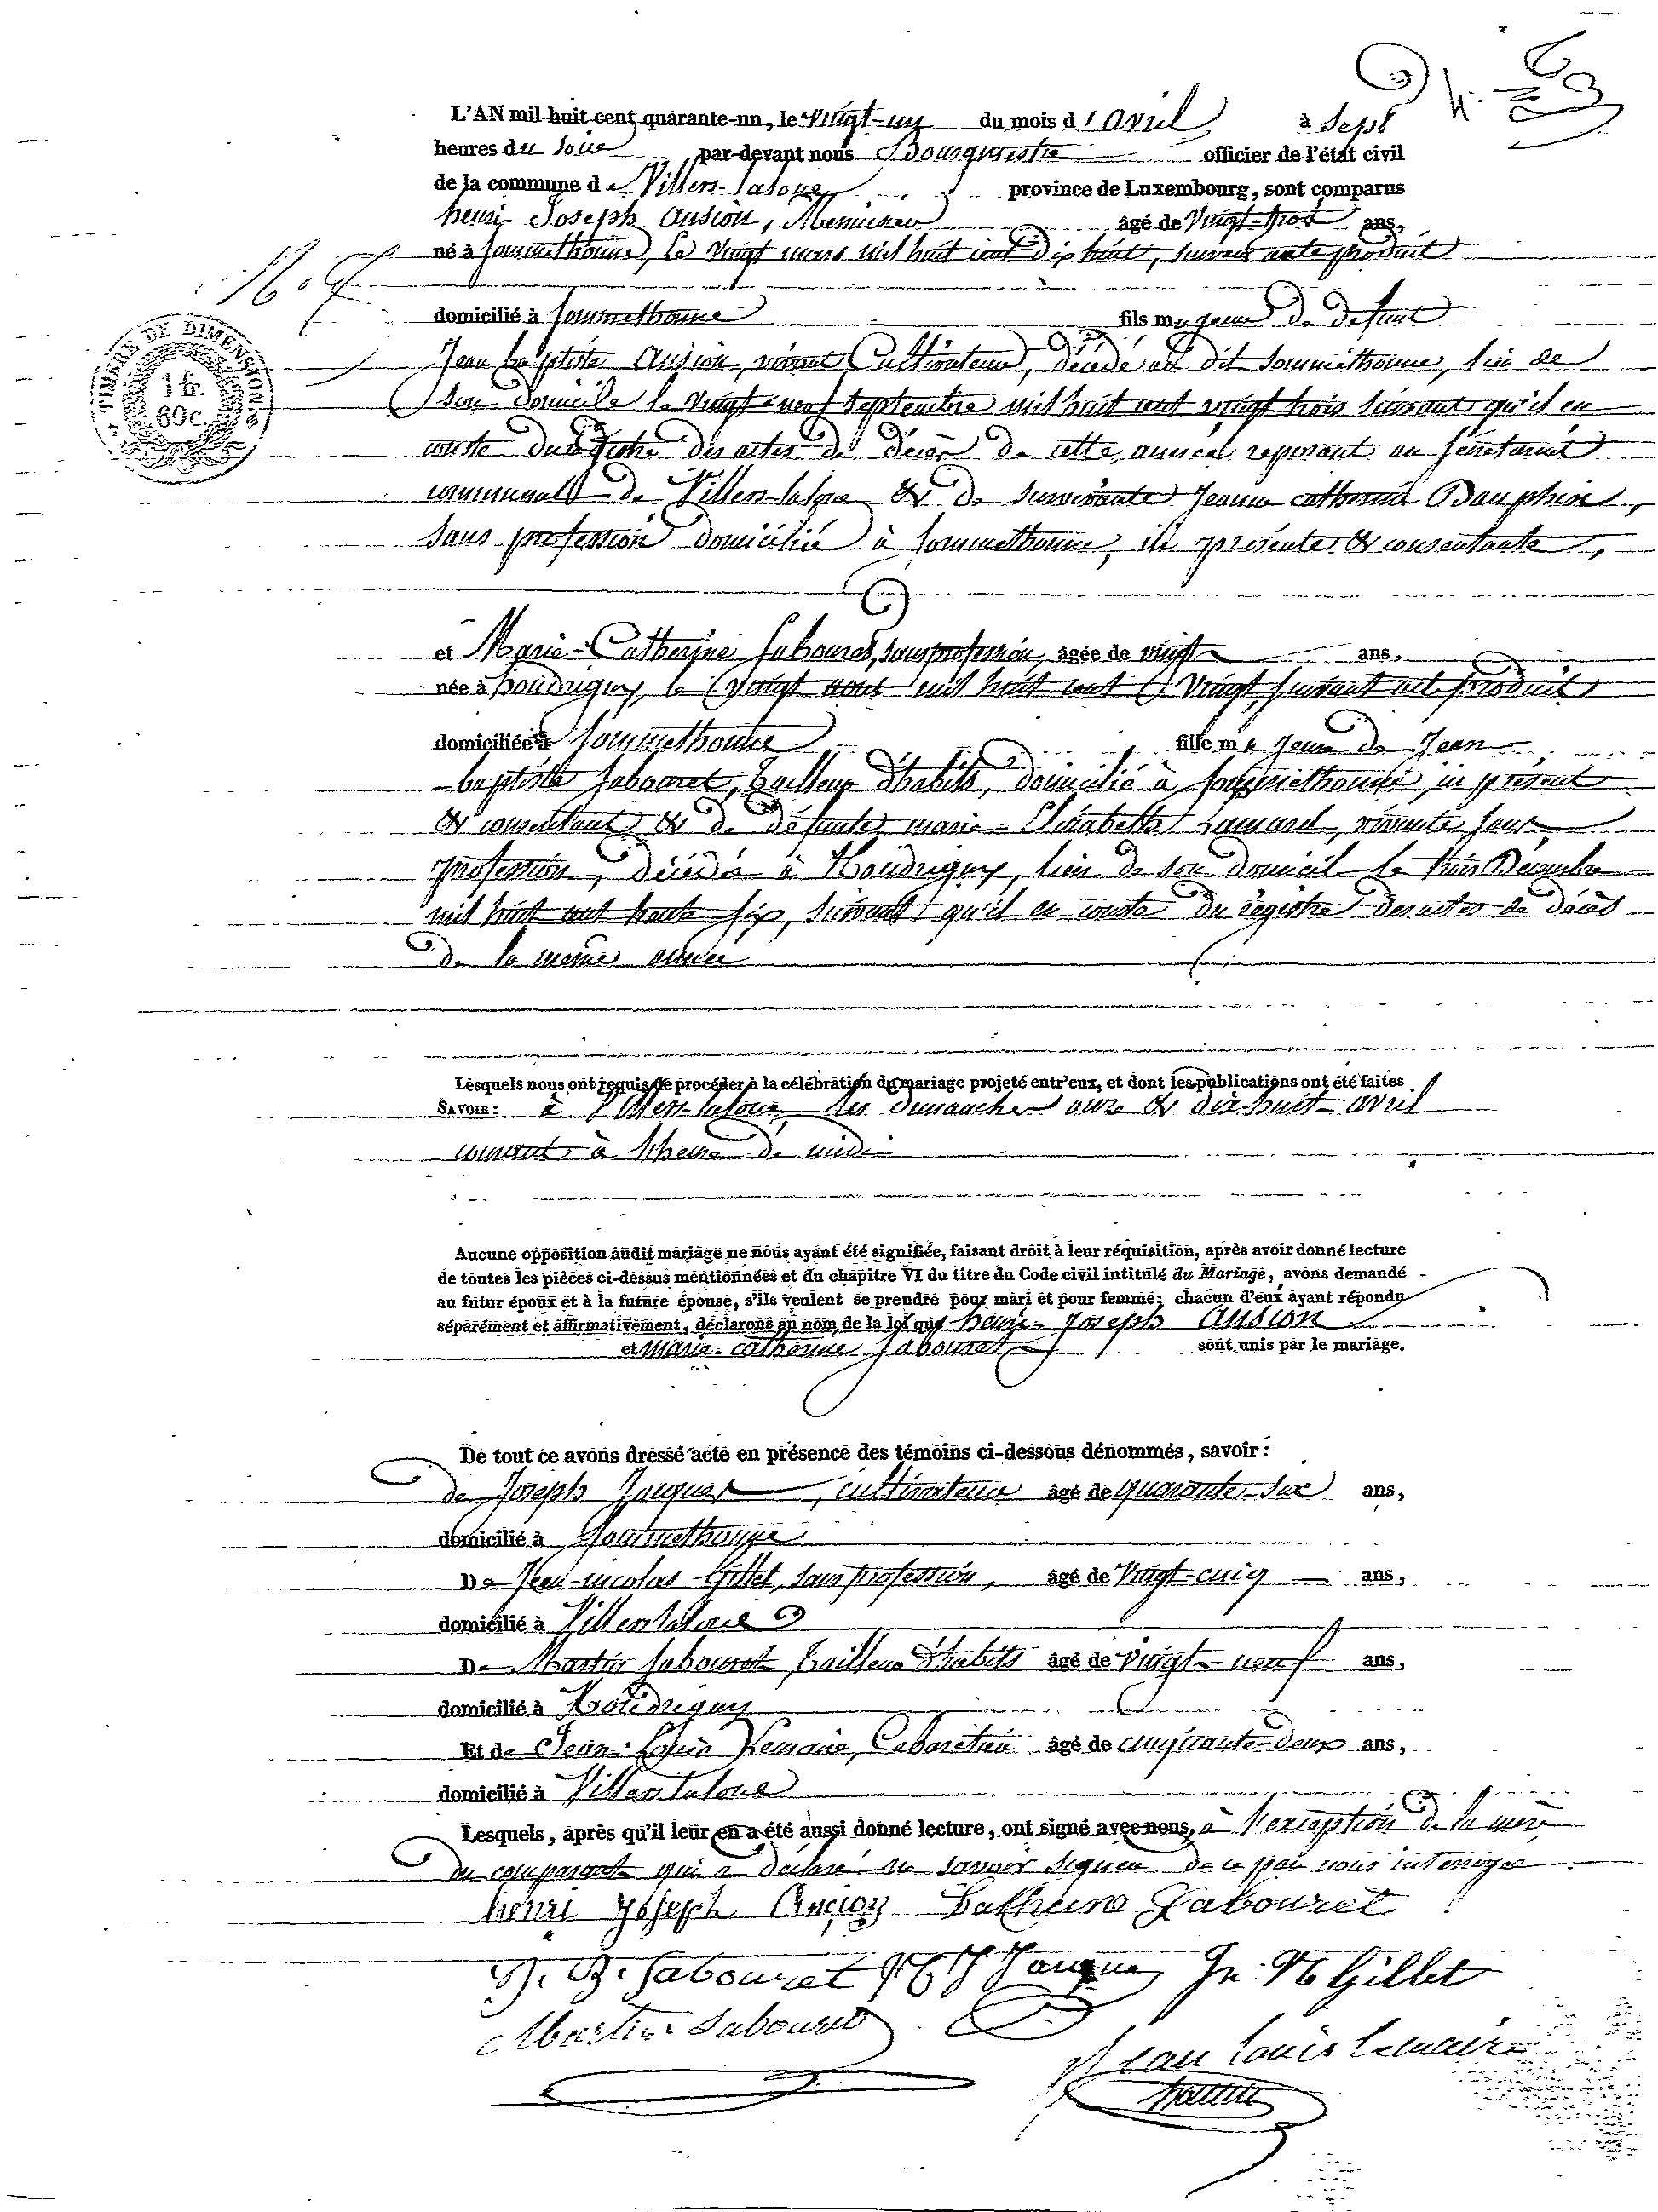 L'AN mil huit cent quarante-un, le vingt-un du mois d'avril à sept
heures du soir par-devant nous Bourgmestre officier de l'état civil
de la commune de Villers-laloue province de Luxembourg, sont comparus
henri-Joseph Ansion, Menuisier âgé de vingt-trois ans,
né à Sommethonne, le vingt mars mil huit cent dix huit, suivant acte produit
N° 4
domicilié à Sommethonne fils majeur de défunt
TIMBRE DE DIMENSION
1 fr.
60 c.
Jean baptiste Ansion, vivant Cultivateur, décédé au dit Sommethonne, lieu de
son domicile le vingt-neuf septembre mil huit cent vingt trois suivant qu'il en
conste du régistre des actes de décès de cette année, reposant au secrétariat
communal de Villers-laloue & de survivante Jeanne catherine Dauphin,
sans profession domiciliée à Sommethonne, ici présente & consentante,
et Marie-Catherine Jabouret, sans profession, âgée de vingt ans,
née à houdrigny, le vingt aout mil huit cent vingt, suivant acte produit
domiciliée à Sommethonne fille majeure de Jean
baptiste Jabouret, Tailleur d'habits, domicilié à Sommethonne, ici présent
& consentant & de défunte marie-Elisabeth Lamard, vivante sans
profession, décédée à Houdrigny, lieu de son domicil le trois Décembre
mil huit cent trente six, suivant qu'il en conste du régistre des actes de décès
de la même année
Lesquels nous ont requis de procéder à la célébration du mariage projeté entr'eux, et dont les publications ont été faites
SAVOIR: à Villers-laloue, les dimanches onze & dix-huit avril
courant à l'heure de midi
Aucune opposition audit mariage ne nous ayant été signifiée, faisant droit à leur réquisition, après avoir donné lecture
de toutes les pièces ci-dessus mentionnées et du chapitre VI du titre du Code civil intitulé du Mariage, avons demandé
au futur époux et à la future épouse, s'ils veulent se prendre pour mari et pour femme; chacun d'eux ayant répondu
séparément et affirmativement, déclarons au nom de la loi que henri-Joseph Ansion
et marie-catherine Jabouret sont unis par le mariage.
De tout ce avons dressé acte en présence des témoins ci-dessous dénommés, savoir:
de Joseph Jacques, cultivateur âgé de quarante-six ans,
domicilié à Sommethonne
De Jean-nicolas Gillet, sans profession, âgé de Vingt-cinq ans,
domicilié à Villerslaloue
De Martin Jabouret Tailleur d'habits âgé de vingt-neuf ans,
domicilié à Houdrigny
Et de Jean-Louis Lemaire, Cabaretier âgé de cinquante-deux ans,
domicilié à Villerslaloue
Lesquels, après qu'il leur en a été aussi donné lecture, ont signé avec nous, à l'exception de la mère
du comparant qui a déclaré ne savoir signer de ce par nous interrogée
henri joseph Ancion Catherine Jabouret
J. B. Jabouret Jacques Jn. N Gillet
Martin Jabouret
Jean louis lemaire